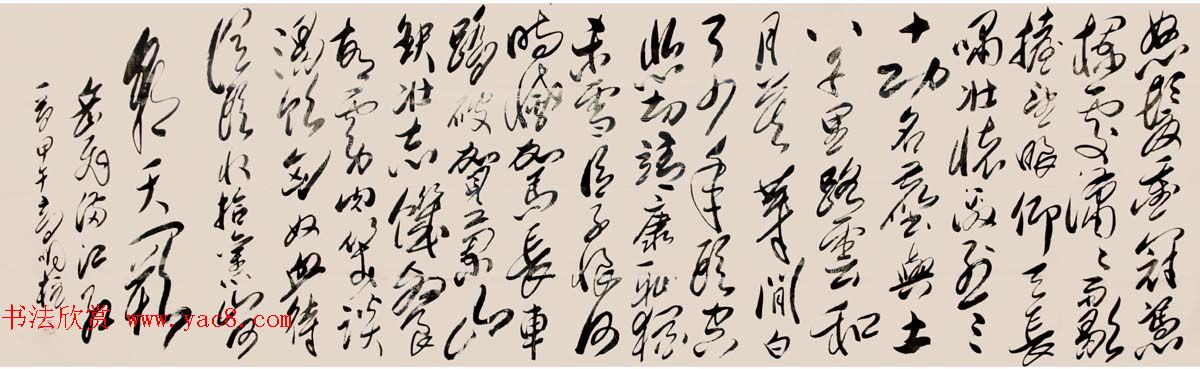 怒髮衝冠憑
欄處瀟〻雨歇
擡望眼仰天長
嘯壯懷激烈三
十功名塵與土
八千里路雲和
月莫等閒白
了少年頭空
悲切靖康恥猶
未雪臣子恨何
時滅駕長車
踏破賀蘭山
缺壯志饑餐
胡虜肉笑談
渴飲匈奴血待
從頭收拾舊山河
朝天闕
岳飛滿江紅
一首甲午
书法欣赏 www.yac8.com